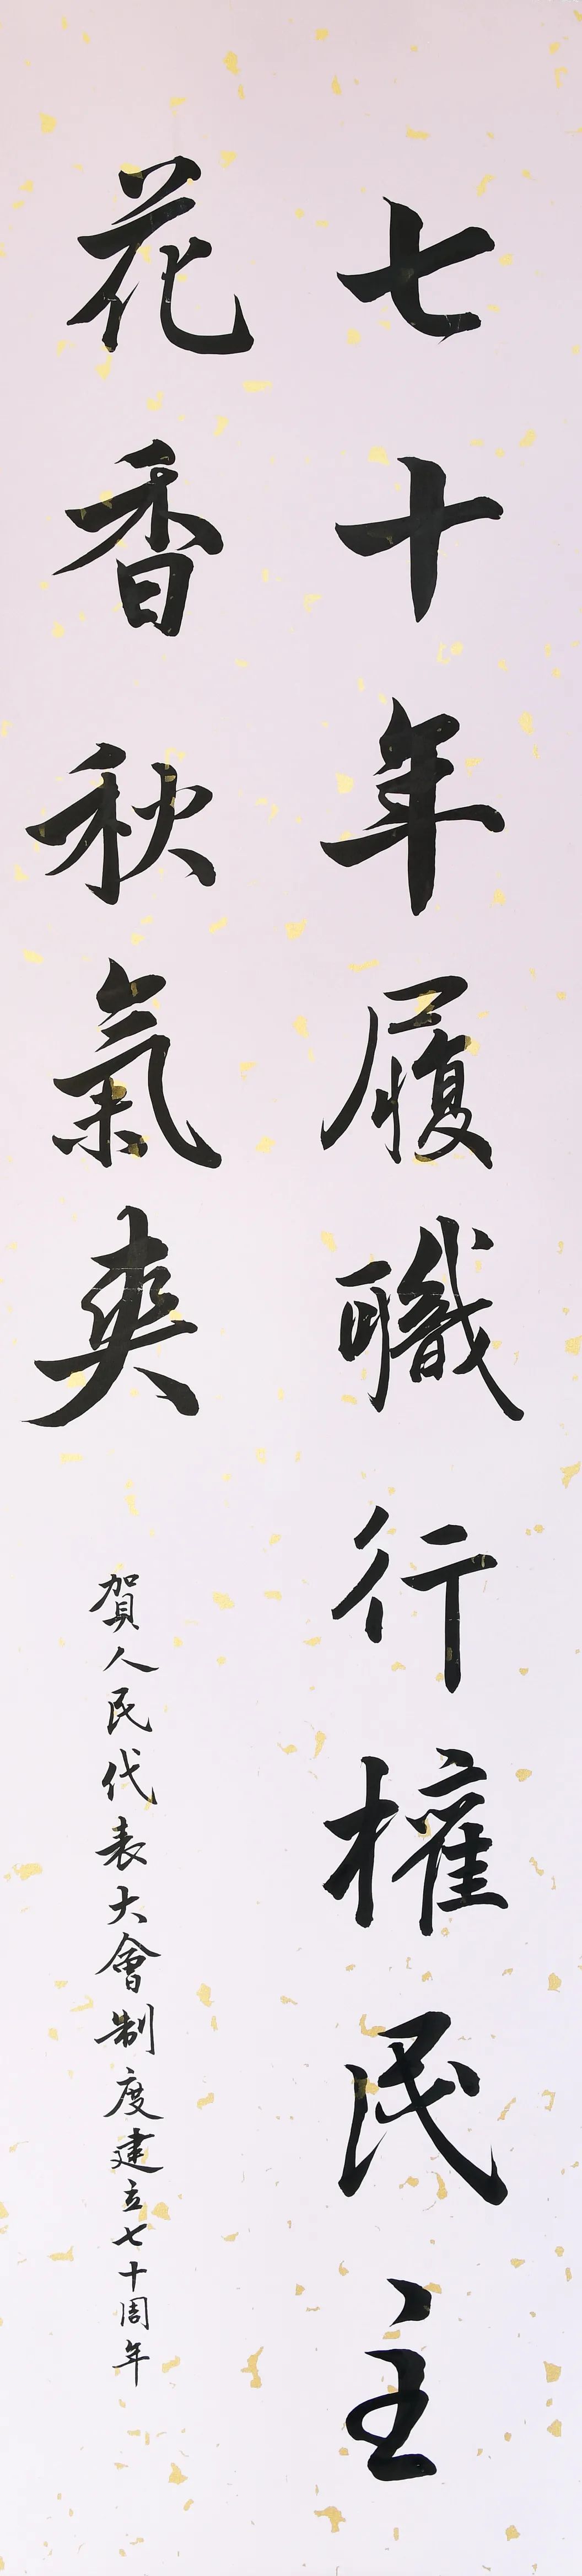 七十年履職行權民主
花香秋氣爽
賀人民代表大會制度建立七十周年